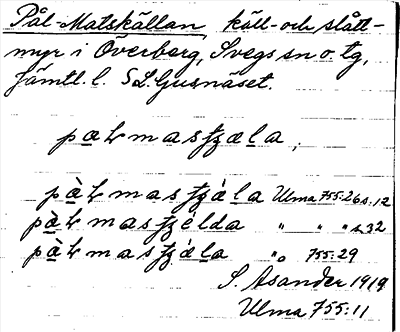 Pål-Matskällan, käll- och slått-
myr i Överberg, Svegs sn o. tg,
Jämtl. l. S L. Gusnäset.
pa̲ƚmasʃʒæla,
pà̲ƚmasʃʒæ̀la Ulma 755:26 s.12
pà̲ƚmasʃʒèlda " " " s 32
pà̲ƚmasʃʒæ̀la " 755:29
S. Asander 1919
Ulma 755:11